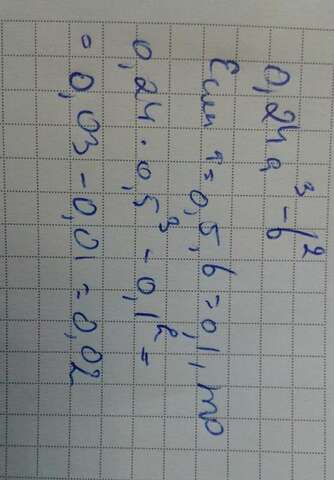 0,24a³ - b²
Если a = 0,5, b = 0,1, то
0,24 · 0,5³ - 0,1² =
= 0,03 - 0,01 = 0,02